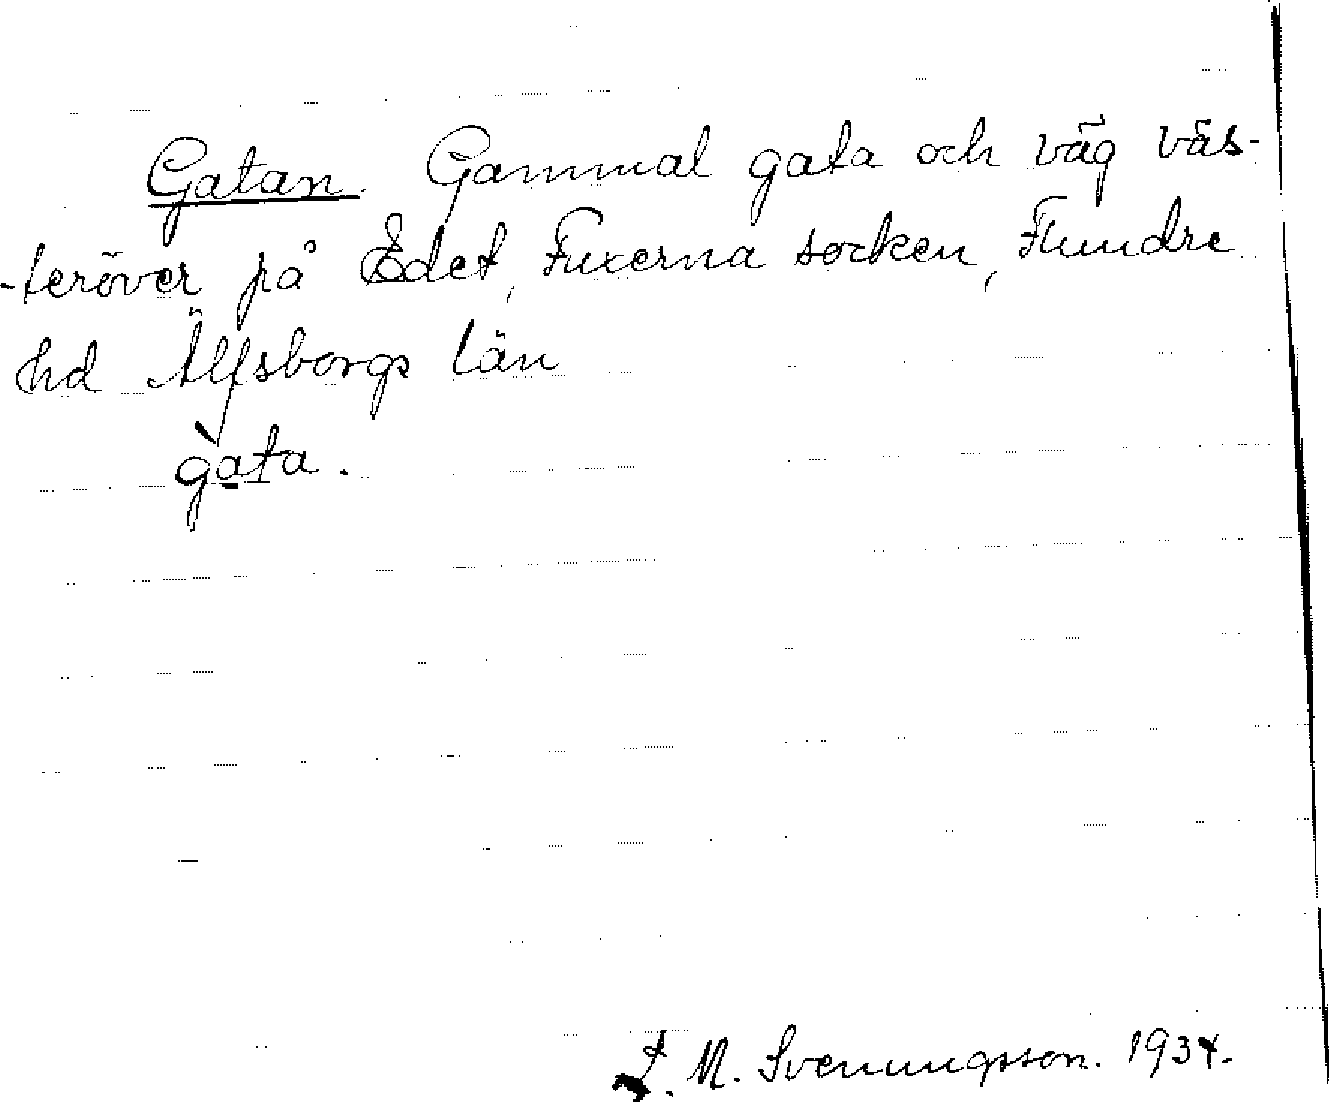 Gatan. Gammal gata och väg väs-
-teröver på Edet, Fuxerna socken, Flundre
hd Älfsborgs län
gàta.
L. M. Svenungsson. 1934.